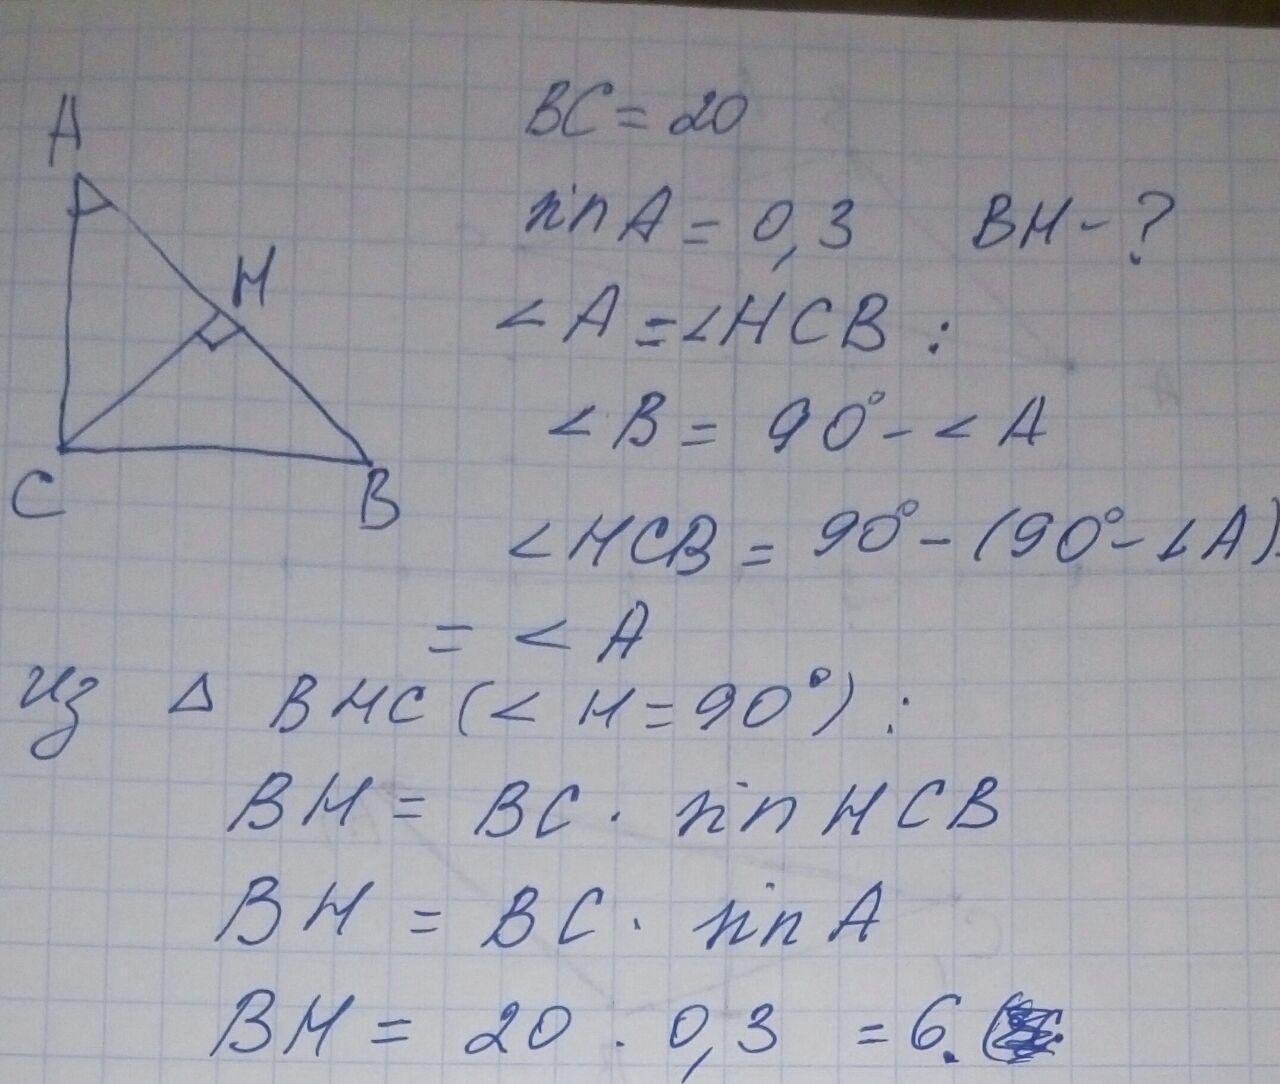 A
H
C
B
BC = 20
sin A = 0,3 BH - ?
∠A = ∠HCB :
∠B = 90° - ∠A
∠HCB = 90° - (90° - ∠A)
= ∠A
Из Δ BHC (∠H = 90°) :
BH = BC · sin HCB
BH = BC · sin A
BH = 20 · 0,3 = 6.